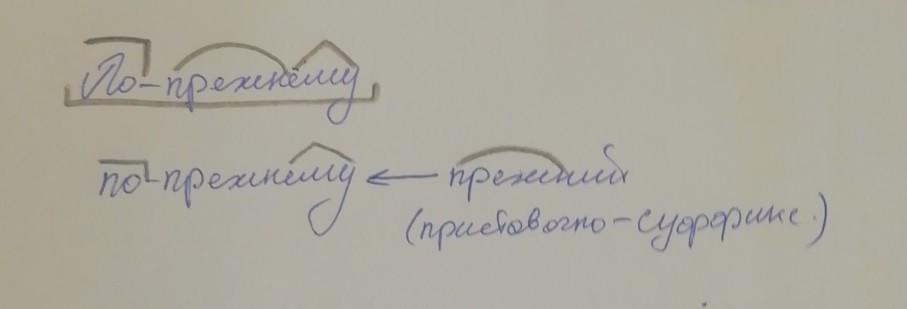 По-прежнему
по-прежнему ← прежний
(приставочно-суффикс.)